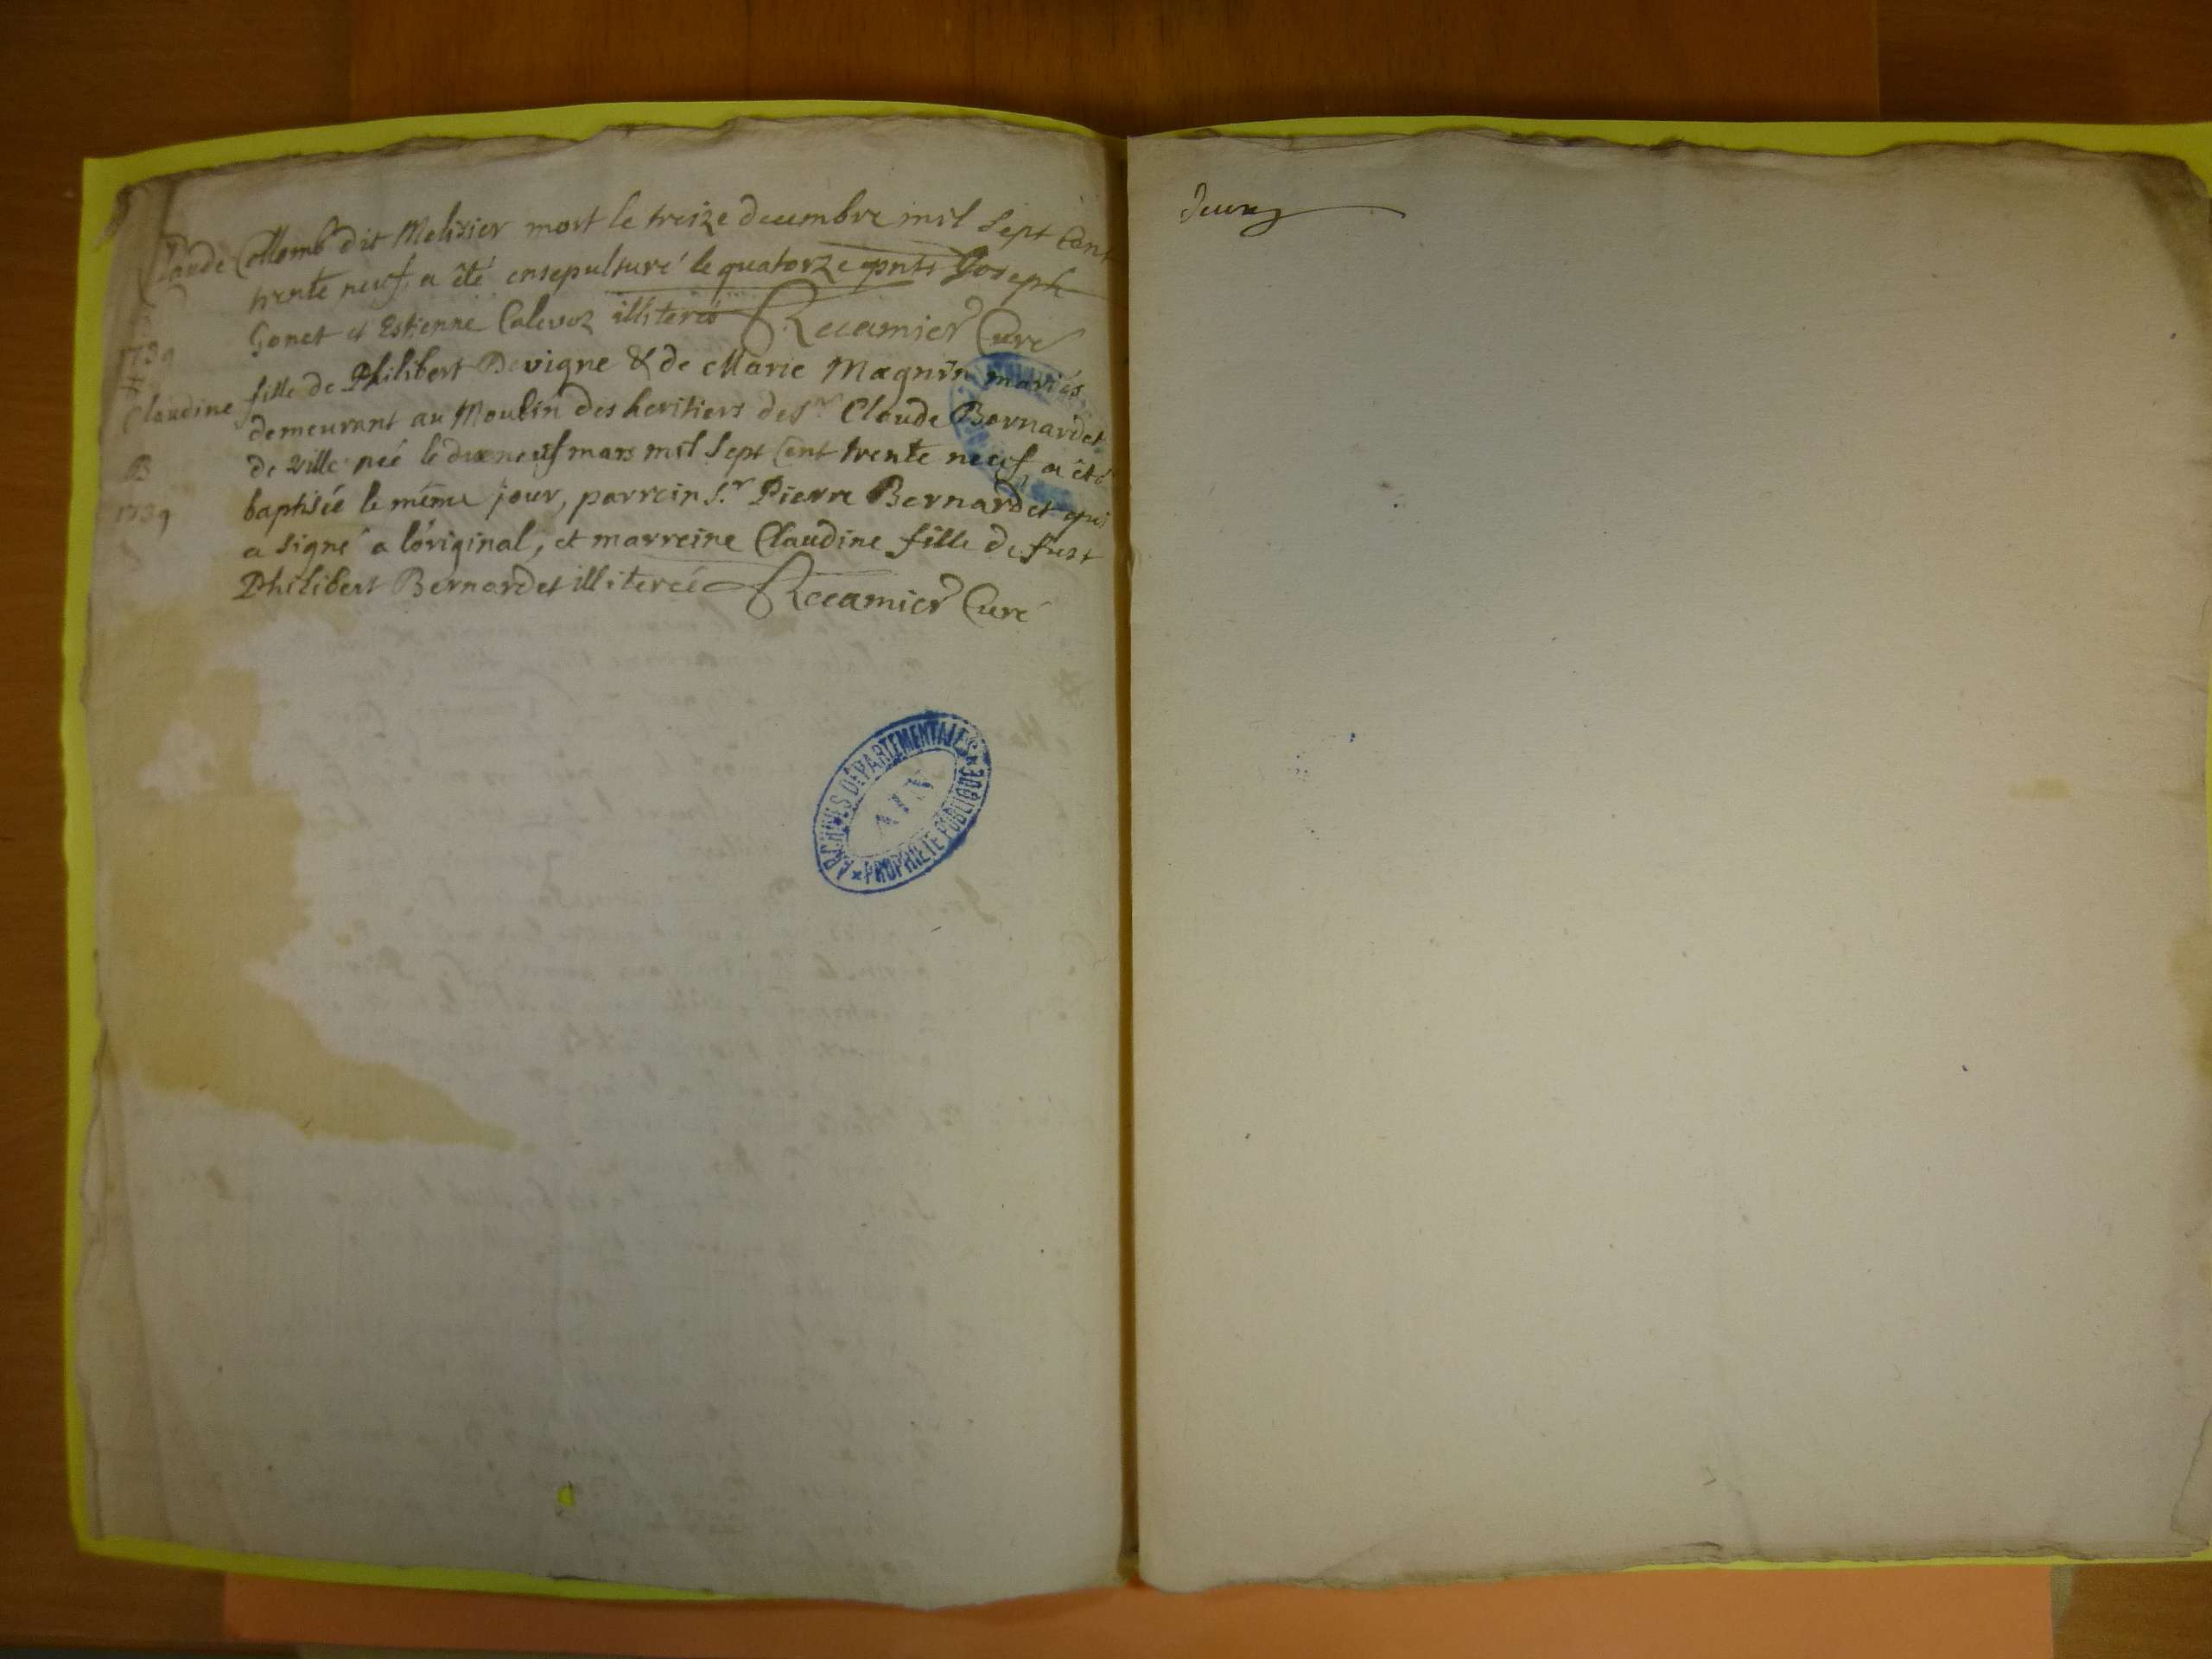 Claude Collomb dit Melisier mort le treize decembre mil sept cent
trente neuf a été ensepulturé le quatorze pnts Joseph
Gonet et Estienne Calevoz illiterés Recamier Curé
1739
#
Claudine fille de Philibert Devigne & de Marie Magnin mariés
demeurant au Moulin des heritiers de Sr Claude Bernardet
B de ville née le dixneuf mars mil sept cent trente neuf a été
1739 baptisée le même jour, parrein Sr Pierre Bernardet qui
a signé a l'original, et marreine Claudine fille de fust
Philibert Bernardet illiterée Recamier Curé
ARCHIVES DÉPARTEMENTALES
AIN
PROPRIÉTÉ PUBLIQUE